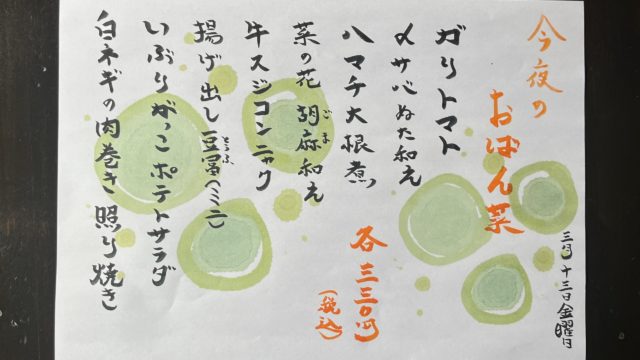 今夜の
おばん菜
三月十三日金曜日
ガリトマト
〆サバぬた和え
ハマチ大根煮
菜の花 胡麻和え
ごま
牛スジコンニャク
揚げ出し豆冨(ミニ)
とうふ
いぶりがっこポテトサラダ
白ネギの肉巻き 照り焼き
各三三〇円
(税込)